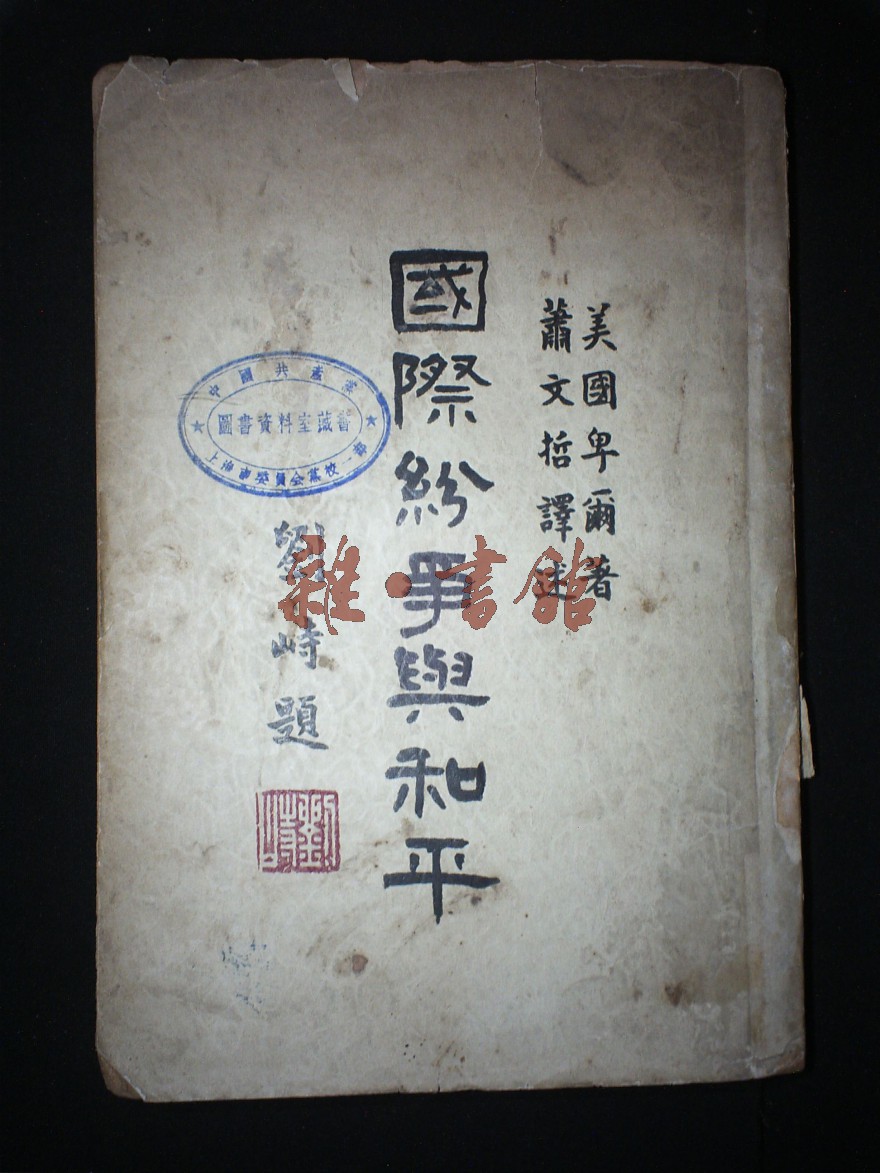 美國卑爾著
蕭文哲譯述
國際紛爭與和平
劉峙題
劉峙
中國共產黨
圖書資料室藏書
上海市委員会黨校一部
雜·書館